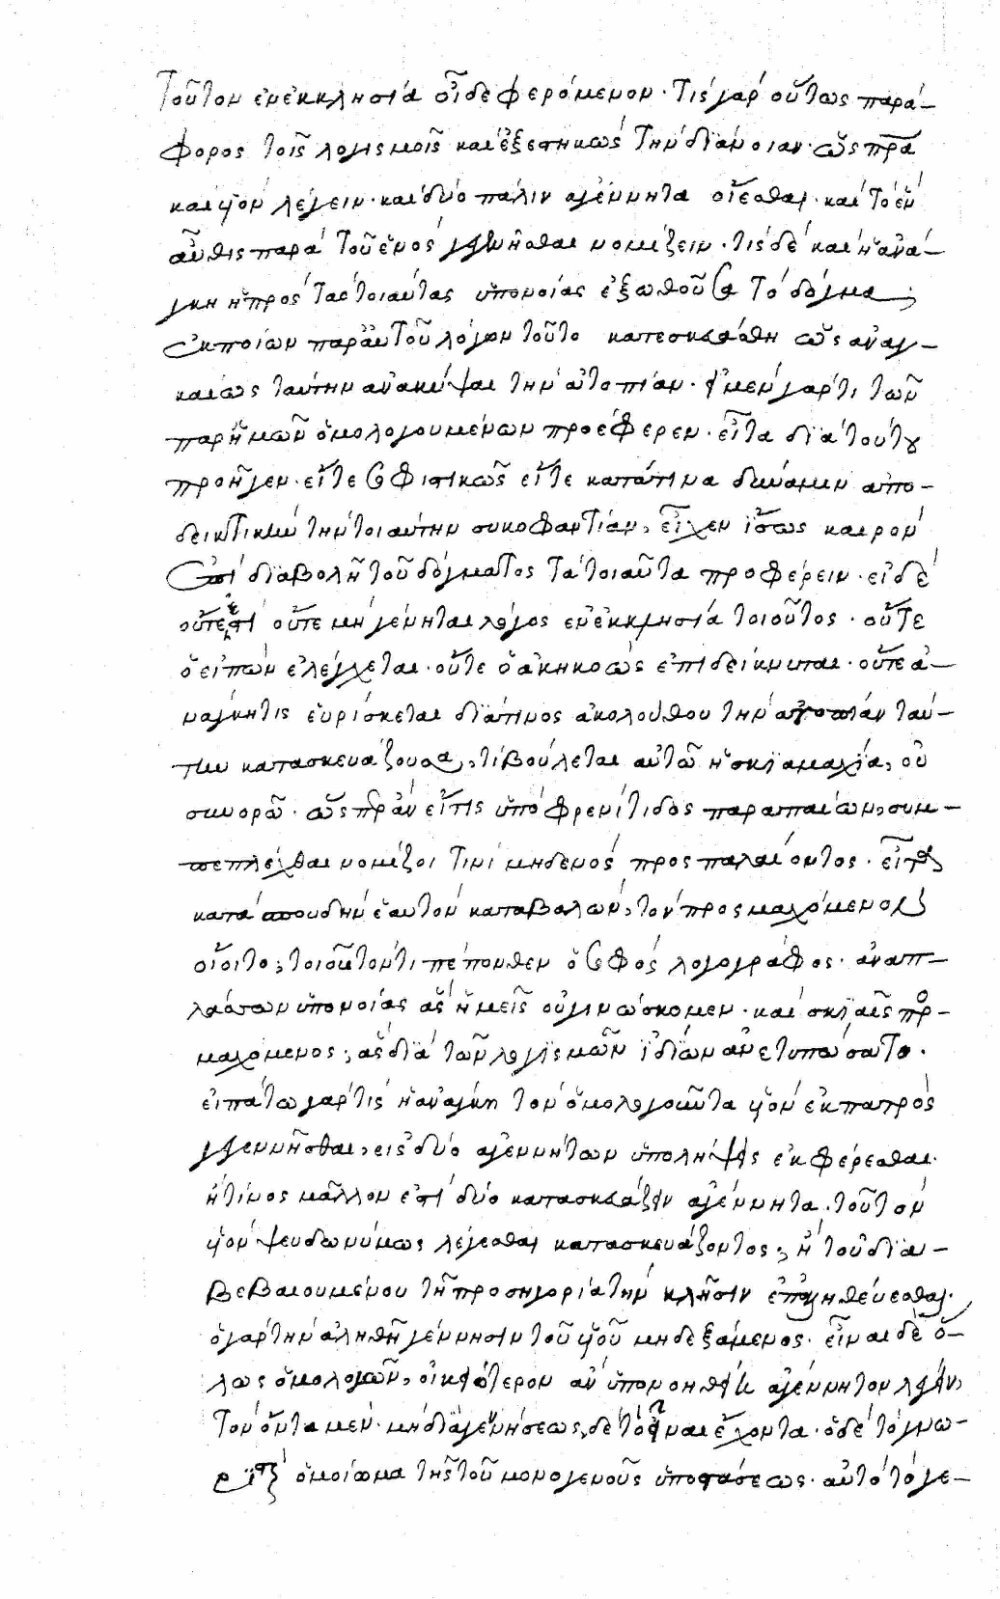 Τοῦτον ἐν ἐκκλησία οἶδε φερόμενον· Τίς γὰρ οὕτως παρά–
φορος τοῖς λογισμοῖς καὶ ἐξεστηκὼς τὴν διάνοιαν· ὡς πρα
καὶ υἱὸν λέγειν· καὶ δύο πάλιν ἀγέννητα οἴεσθαι· καὶ τὸ ἓν
αὖθις παρὰ τοῦ ἑνὸς γεγενῆσθαι νομίζειν· τίς δὲ καὶ ἡ ἀνά–
γκη ἡ πρὸς τὰς τοιαύτας ὑπονοίας ἐξωθοῦσα τὸ δόγμα;
ἐκ ποίων παρ' αὐτοῦ λόγων τοῦτο κατεσκευάσθη ὡς ἀναγ–
καίως ταύτην ἀνακύψαι τὴν ἀτοπίαν· εἰ μὲν γάρ τι τῶν
παρ' ἡμῶν ὁμολογουμένων προέφερεν· εἶτα διὰ τούτου
προῆγεν· εἴτε σοφιστικῶς εἴτε κατά τινα δύναμιν ἀπο–
δεικτικὴν τὴν τοιαύτην συκοφαντίαν, εἶχεν ἴσως καιρὸν
ἐπὶ διαβολῇ τοῦ δόγματος τὰ τοιαῦτα προφέρειν· εἰ δὲ
οὔτε ἐστὶ οὔτε μὴ γένηται λόγος ἐν ἐκκλησία τοιοῦτος· οὔτε
ὁ εἰπὼν ἐλέγχεται· οὔτε ὁ ἀκηκοὼς ἐπιδείκνυται· οὔτε ἀ–
νάγκη τις εὑρίσκεται διά τινος ἀκολούθου τὴν ἀτοπίαν ταύ–
την κατασκευάζουσα, τί βούλεται αὐτῶ ἡ σκιαμαχία, οὐ
συνορῶ· ὥσπερ ἂν εἴ τις ὑπὸ φρενίτιδος παραπαίων, συμ–
πεπλέχθαι νομίζοι τινὶ μηδενὸς προσπαλαίοντος· εἶτα
κατὰ σπουδὴν ἑαυτὸν καταβαλὼν, τὸν προσμαχόμενον
οἴοιτο, τοιοῦτόν τι πέπονθεν ὁ σοφὸς λογογράφος· ἀναπ–
λάσσων ὑπονοίας ἃς ἡμεῖς οὐ γινώσκομεν· καὶ σκιαῖς προ–
μαχόμενος, ἃς διὰ τῶν λογισμῶν ἰδίων ἀνετυπώσατο.
εἰπάτω γὰρ τίς ἡ ἀνάγκη τὸν ὁμολογοῦντα υἱὸν ἐκ πατρὸς
γεγεννῆσθαι, εἰς δύο ἀγεννήτων ὑπολήψεις ἐκφέρεσθαι·
ἢ τίνος μᾶλλον ἐστὶ δύο κατασκευάζειν ἀγέννητα. τοῦ τὸν
υἱὸν ψευδωνύμως λέγεσθαι κατασκευάζοντος, ἢ τοῦ δια–
βεβαιουμένου τῆ προσηγορία τὴν κλῆσιν ἐπαληθεύεσθαι.
ὁ γὰρ τὴν ἀληθῆ γέννησιν τοῦ υἱοῦ μὴ δεξάμενος· εἶναι δὲ ὅ–
λως ὁμολογῶν, οἰκειότερον ἂν ὑπονοηθείη ἀγέννητον λέγειν,
τὸν ὄντα μὲν· μὴ διὰ γεννήσεως δὲ τὸ εἶναι ἔχοντα· ὁ δὲ τὸ γνω–
ριστικὸν ὁμοίωμα τῆς τοῦ μονογενοῦς ὑποστάσεως· αὐτὸ τὸ γε–